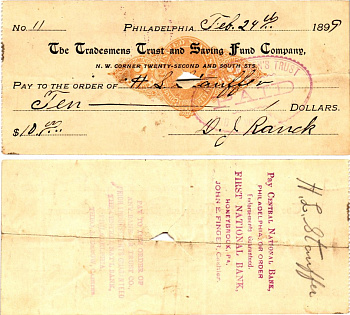 No. 11 Philadelphia, Feb. 24th 1899
The Tradesmens Trust and Saving Fund Company,
N. W. CORNER TWENTY-SECOND AND SOUTH STS.
Pay to the order of H. L. Stauffer
Ten Dollars.
$10.00 D. J. Ranck
TRUST
H. L. Stauffer
Pay Central National Bank,
PHILADELPHIA, OR ORDER
Endorsements Guaranteed.
FIRST NATIONAL BANK,
HONEYBROOK, PA.
JOHN E. FINGER, Cashier.
PAY TO THE ORDER OF